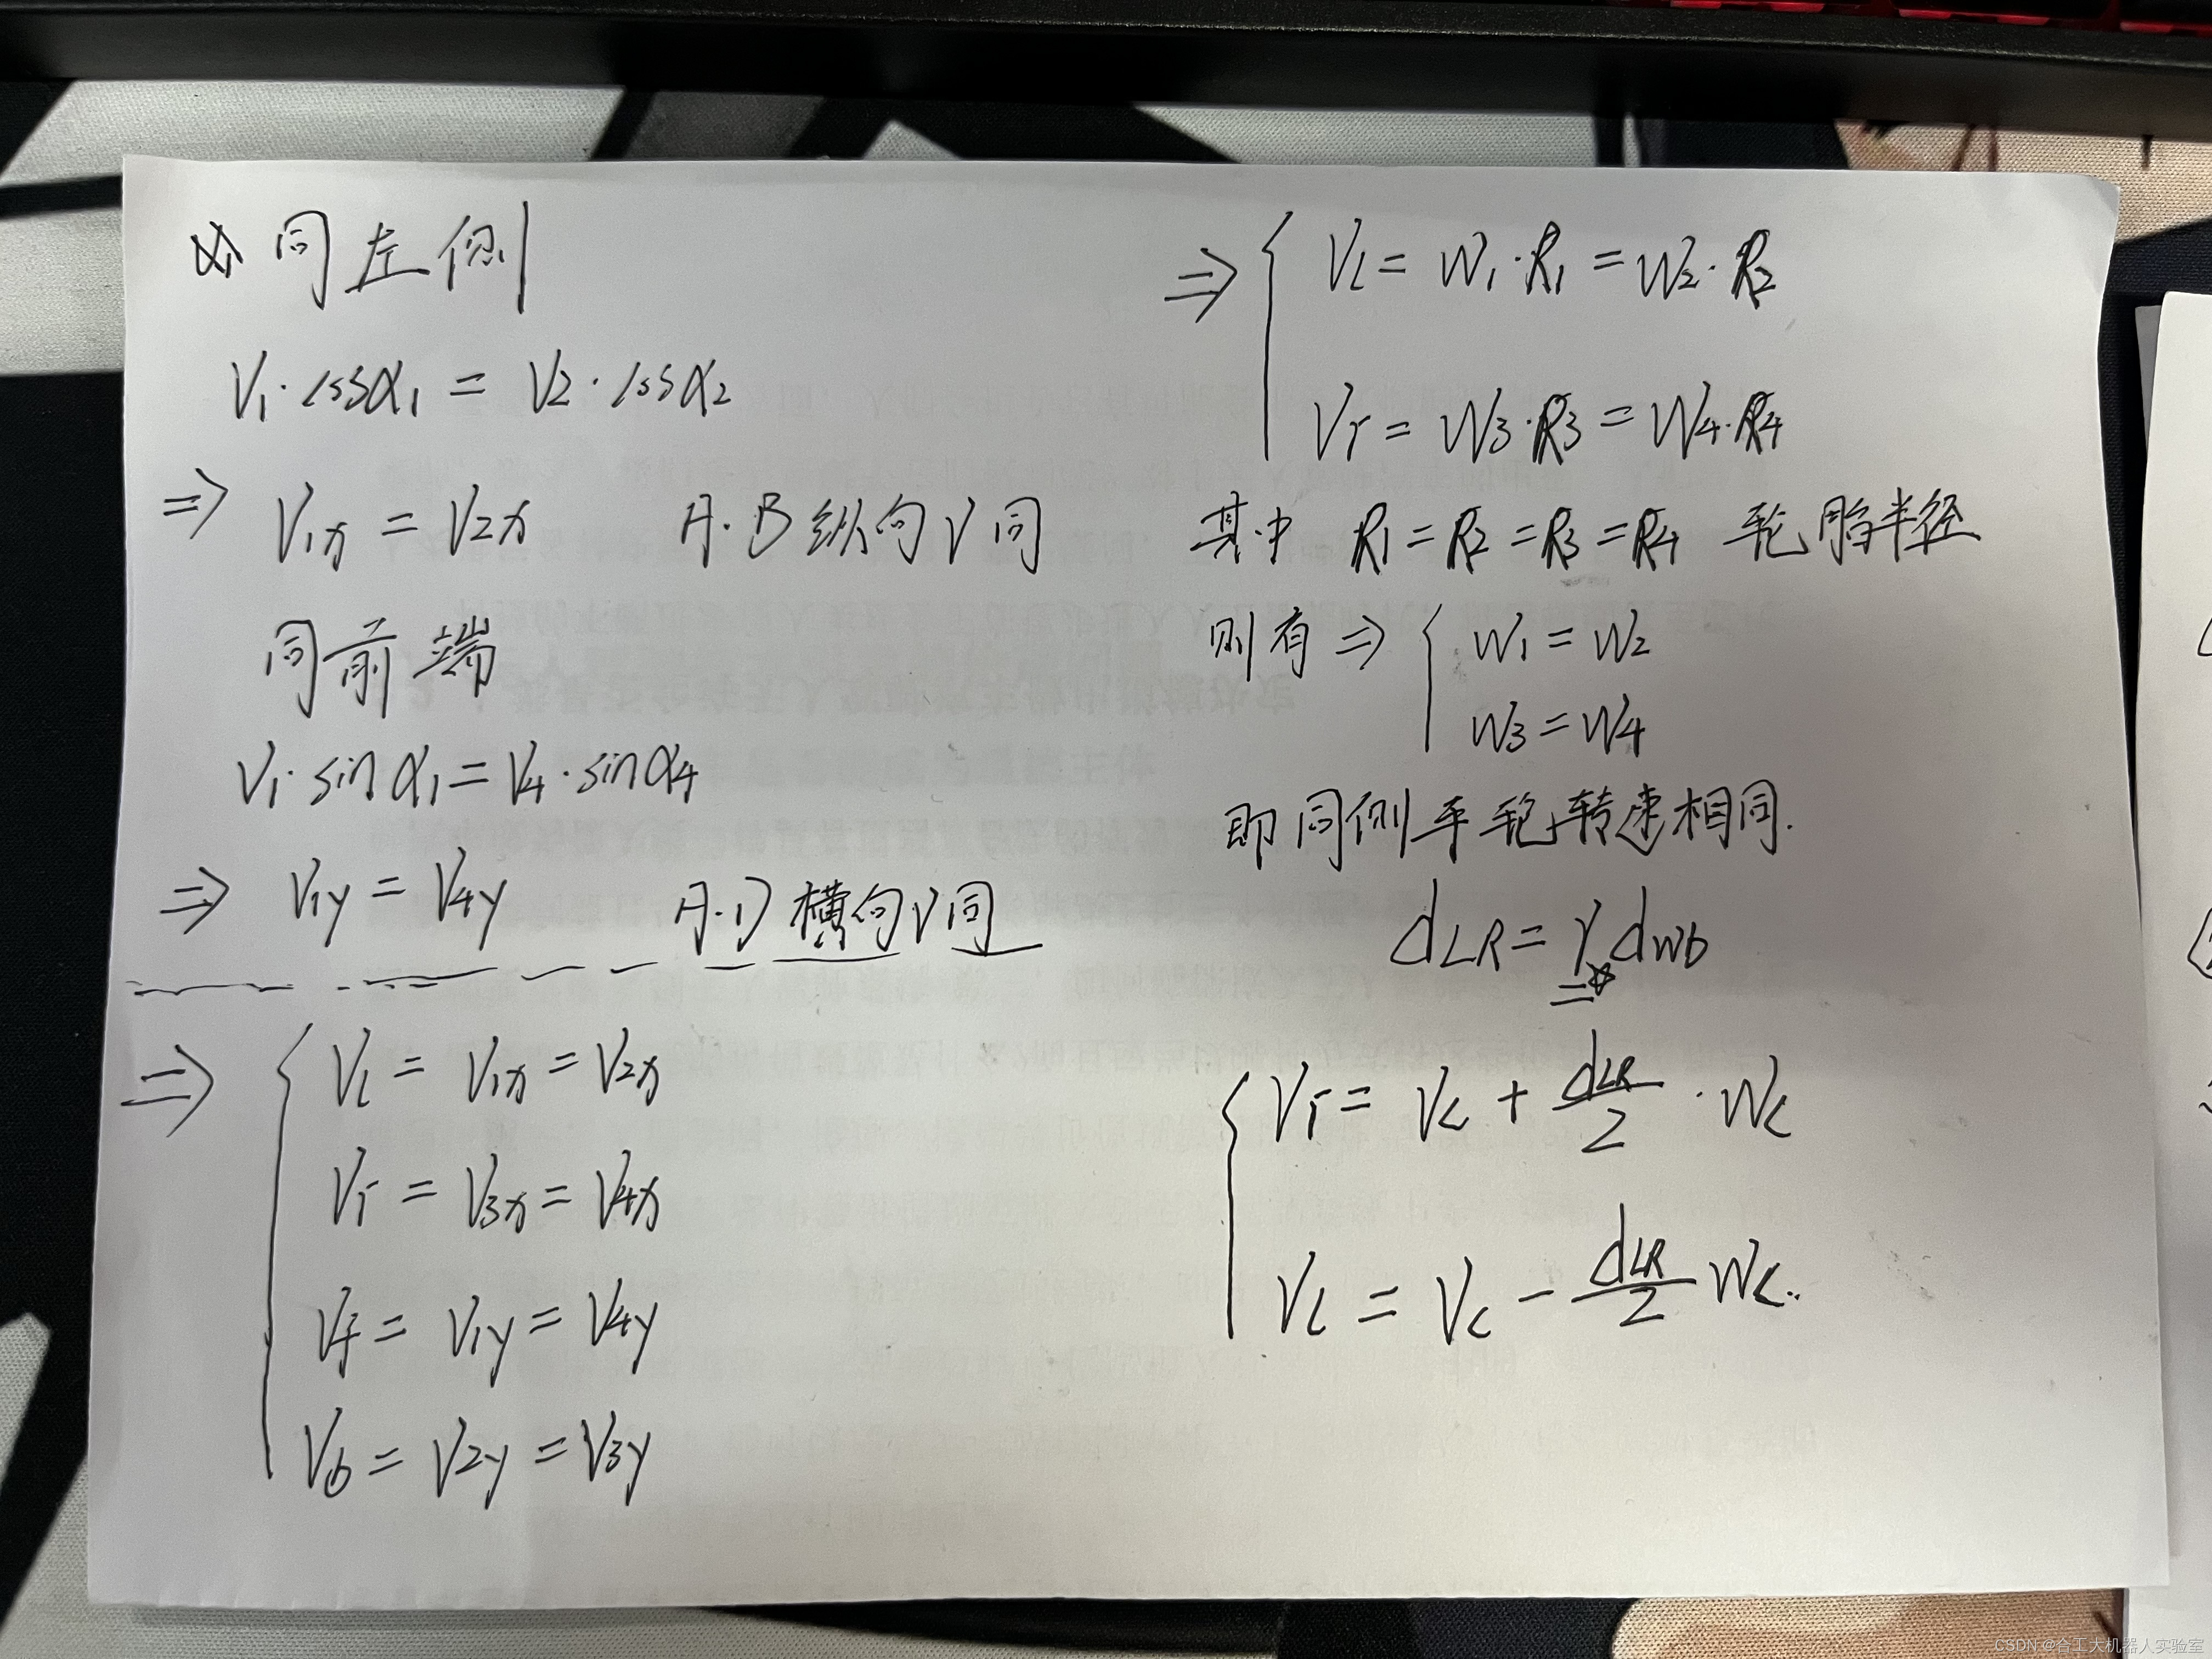 同左侧
V1·cosα1 = V2·cosα2
⇒ V1x = V2x A·B 纵向V同
同前端
V1·sinα1 = V4·sinα4
⇒ V1y = V4y A·D 横向V同
⇒ { Vl = V1x = V2x
Vr = V3x = V4x
Vf = V1y = V4y
Vb = V2y = V3y
⇒ { Vl = W1·R1 = W2·R2
Vr = W3·R3 = W4·R4
其中 R1 = R2 = R3 = R4 轮胎半径
则有 ⇒ { W1 = W2
W3 = W4
即同侧车轮转速相同.
dLR = γ dwb
{ Vr = Vc + dLR/2 · Wc
Vl = Vc - dLR/2 Wc.
CSDN @合工大机器人实验室